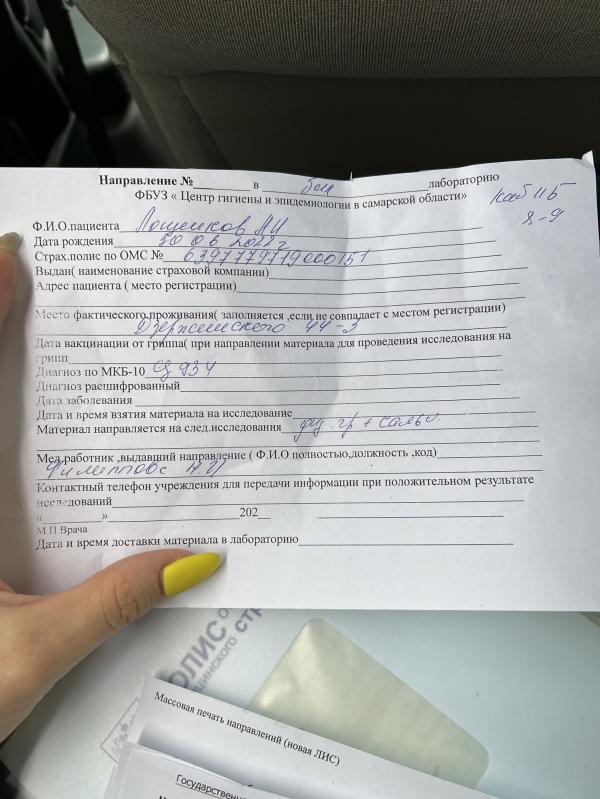 Направление №________ в ____бак____лабораторию
ФБУЗ « Центр гигиены и эпидемиологии в самарской области»
каб 115
8-9
Ф.И.О.пациента
Дата рождения 30 06 2022 г
Страх.полис по ОМС № 6397779719000151
Выдан( наименование страховой компании)
Адрес пациента ( место регистрации)
Место фактического.проживания( заполняется ,если не совпадает с местом регистрации)
Дзержинского 44-3
Дата вакцинации от гриппа( при направлении материала для проведения исследования на
грипп
Диагноз по МКБ-10
Диагноз расшифрованный
Дата заболевания
Дата и время взятия материала на исследование
Материал направляется на след.исследования гр + сальм.
Мед.работник ,выдавший направление ( Ф.И.О полностью,должность ,код)
Филиппова
Контактный телефон учреждения для передачи информации при положительном результате
исследований
«________»____________________202__
М П Врача
Дата и время доставки материала в лабораторию
ОЛИС
Массовая печать направлений (новая ЛИС)